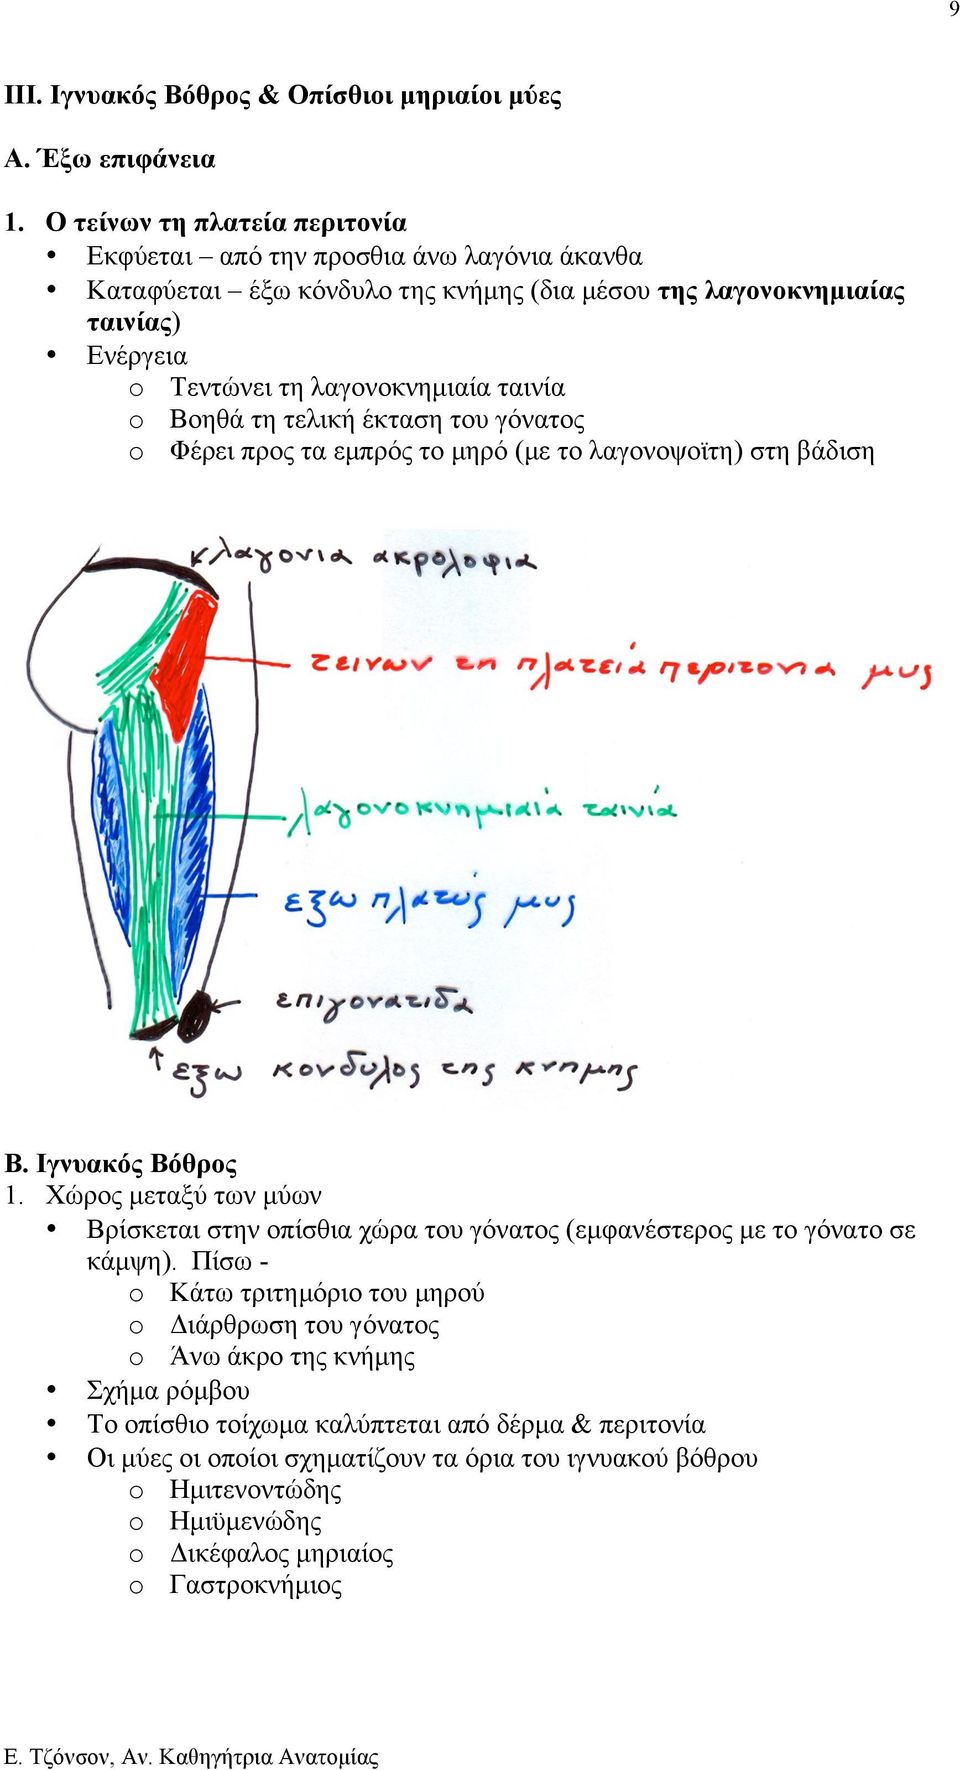 9
III. Ιγνυακός Βόθρος & Οπίσθιοι μηριαίοι μύες
Α. Έξω επιφάνεια
1. Ο τείνων τη πλατεία περιτονία
• Εκφύεται – από την προσθια άνω λαγόνια άκανθα
• Καταφύεται – έξω κόνδυλο της κνήμης (δια μέσου της λαγονοκνημιαίας
ταινίας)
• Ενέργεια
o Τεντώνει τη λαγονοκνημιαία ταινία
o Βοηθά τη τελική έκταση του γόνατος
o Φέρει προς τα εμπρός το μηρό (με το λαγονοψοϊτη) στη βάδιση
λαγονια ακρολοφια
τεινων τη πλατειά περιτονια μυς
λαγονοκνημιαιά ταινία
εξω πλατύς μυς
επιγονατιδα
εξω κονδυλος της κνημης
Β. Ιγνυακός Βόθρος
1. Χώρος μεταξύ των μύων
• Βρίσκεται στην οπίσθια χώρα του γόνατος (εμφανέστερος με το γόνατο σε
κάμψη). Πίσω -
o Κάτω τριτημόριο του μηρού
o Διάρθρωση του γόνατος
o Άνω άκρο της κνήμης
• Σχήμα ρόμβου
• Το οπίσθιο τοίχωμα καλύπτεται από δέρμα & περιτονία
• Οι μύες οι οποίοι σχηματίζουν τα όρια του ιγνυακού βόθρου
o Ημιτενοντώδης
o Ημιϋμενώδης
o Δικέφαλος μηριαίος
o Γαστροκνήμιος
Ε. Τζόνσον, Αν. Καθηγήτρια Ανατομίας